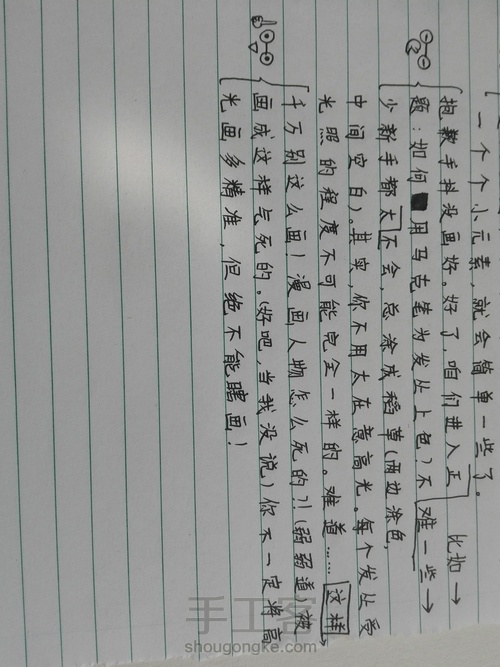 一个个小元素，就会简单一些了。
抱歉手抖没画好。好了，咱们进入正
比如→
题：如何用马克笔为发丝上色？不
难一些→
少新手都太不会，总涂成稻草(两边涂色，
中间空白)。其实，你不用太在意高光。每个发丝受
光照的程度不可能完全一样的。难道……这样→
千万别这么画！漫画人物怎么死的？！(弱弱道)被
画成这样死的。(好吧，当我没说)你不一定将高
光画多精准，但绝不能瞎画！
手工客
shougongke.com